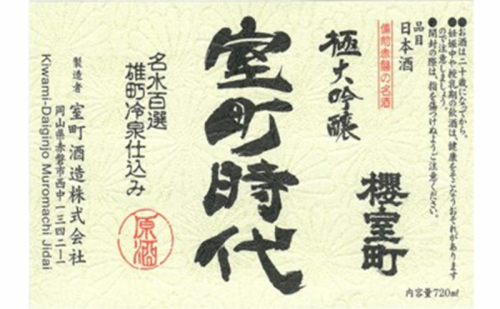 ●お酒は二十歳になってから。
●妊娠中や授乳期の飲酒は、健康をそこなうおそれがあります
ので注意しましょう。
●開封の際は、指を傷つけぬようご注意ください。
品目
日本酒
備前赤磐の名酒
極大吟醸
櫻室町
室町時代
名水百選
雄町冷泉仕込み
原酒
製造者 室町酒造株式会社
岡山県赤磐市西中一三四二-一
Kiwami-Daiginjo Muromachi Jidai
内容量720㎖